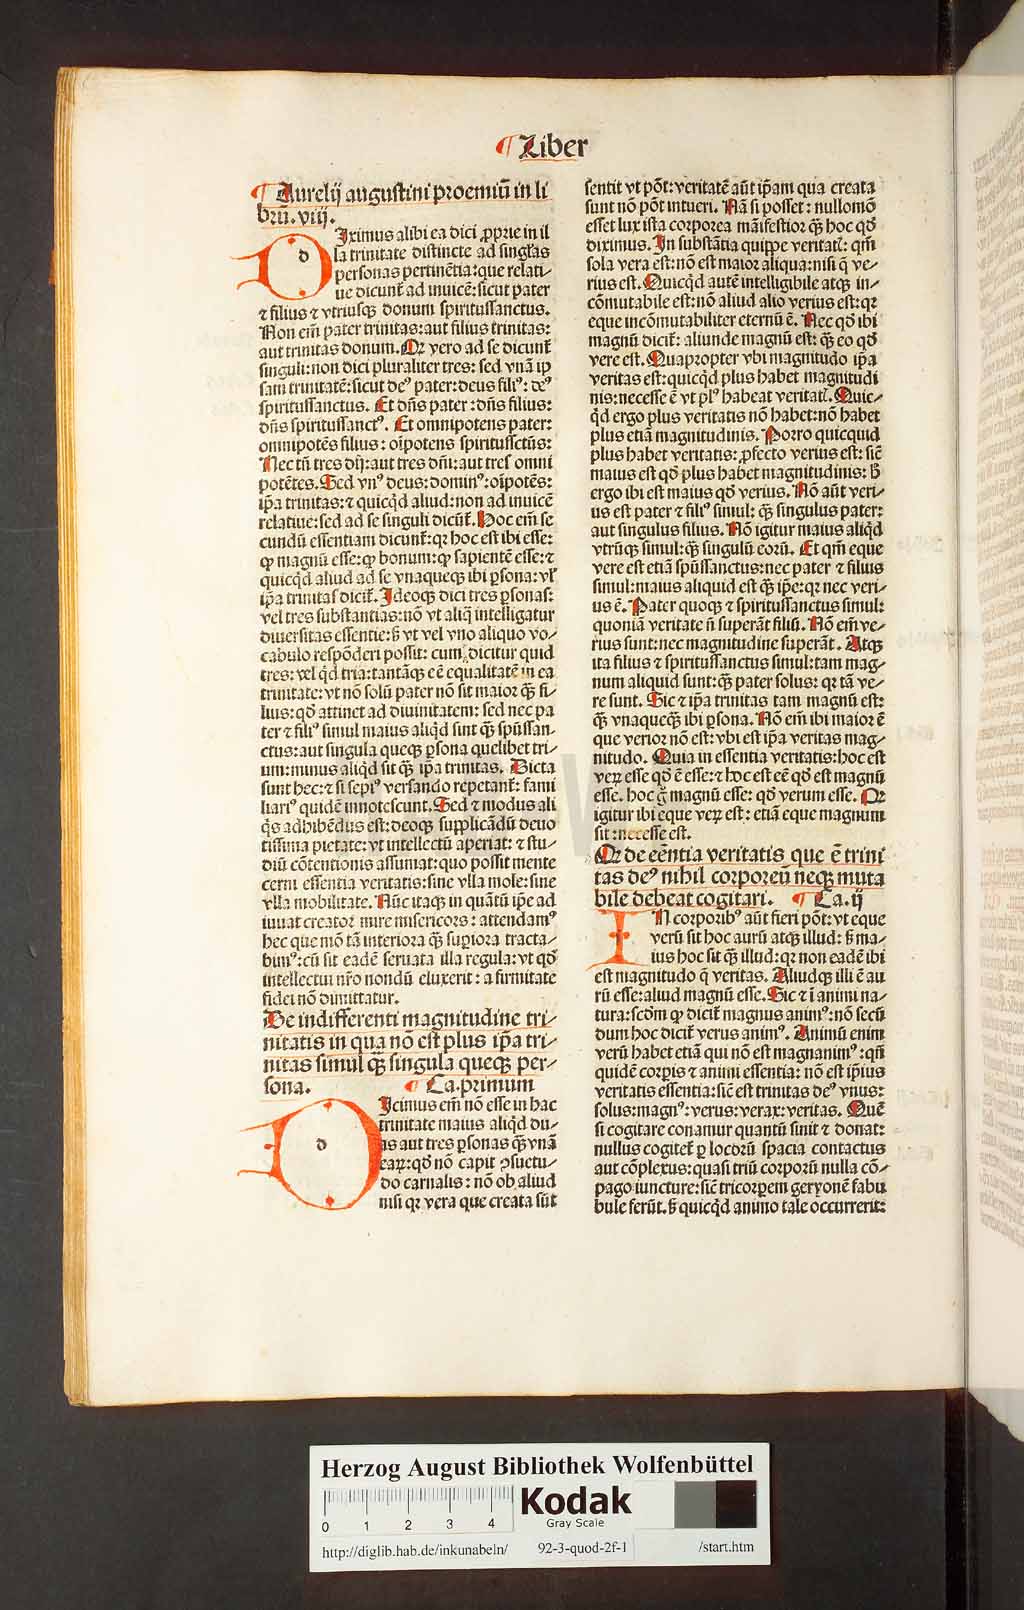 ¶ Liber
¶ Aurelij augustini proemiū in li
brū. viij.
DIximus alibi ea dici ꝓprie in il
la trinitate distincte ad singĺas
personas pertinētia: que relati-
ue dicunt᷑ ad inuicē: sicut pater
⁊ filius ⁊ vtriusqꝫ donum spiritussanctus.
Non em̄ pater trinitas: aut filius trinitas:
aut trinitas donum. Qꝛ vero ad se dicunt᷑
singuli: non dici pluraliter tres: sed vnā ip
sam trinitatē: sicut deꝰ pater: deus filiꝰ: deꝰ
spiritussanctus. Et dn̄s pater: dn̄s filius:
dn̄s spiritussanctꝰ. Et omnipotens pater:
omnipotēs filius: oīpotens spiritussctūs:
Nec tn̄ tres dij: aut tres dn̄i: aut tres omni
potētes. Sed vnꝰ deus: dominꝰ: oīpotēs:
ip̄a trinitas: ⁊ quicq̄d aliud: non ad inuicē
relatiue: sed ad se singuli dicunt᷑. Hoc em̄ se
cundū essentiam dicunt᷑: qꝛ hoc est ibi esse:
ꝙ magnū esse: ꝙ bonum: ꝙ sapientē esse: ⁊
quicq̄d aliud ad se vnaqueqꝫ ibi ꝑsona: vĺ
ip̄a trinitas dicit᷑. Ideoqꝫ dici tres ꝑsonas:
vel tres substantias: nō vt aliq̄ intelligatur
diuersitas essentie: ß vt vel vno aliquo vo-
cabulo respōderi possit: cum dicitur quid
tres: vel q̄d tria: tantāqꝫ eē equalitatē in ea
trinitate: vt nō solū pater nō sit maior qꝫ fi-
lius: qd̄ attinet ad diuinitatem: sed nec pa
ter ⁊ filiꝰ simul maius aliq̄d sint qꝫ spūssan-
ctus: aut singula queqꝫ ꝑsona quelibet tri-
um: minus aliq̄d sit qꝫ ip̄a trinitas. Dicta
sunt hec: ⁊ si sepiꝰ versando repetant᷑: fami
liariꝰ quidē innotescunt. Sed ⁊ modus ali
q̄s adhibēdus est: deoqꝫ supplicādū deuo
tissima pietate: vt intellectū aperiat: ⁊ stu-
diū cōtentionis assumat: quo possit mente
cerni essentia veritatis: sine vlla mole: sine
vlla mobilitate. Nūc itaqꝫ in quātū ip̄e ad
iuuat creator mire misericors: attendamꝰ
hec que mō tā interiora qꝫ supiora tracta-
bimꝰ: cū sit eadē seruata illa regula: vt qd̄
intellectui nr̄o nondū eluxerit: a firmitate
fidei nō dimittatur.
De indifferenti magnitudine tri-
nitatis in qua nō est plus ip̄a tri-
nitas simul qꝫ singula queqꝫ per-
sona. ¶ Ca. primum
DIcimus em̄ nō esse in hac
trinitate maius aliq̄d du-
as aut tres ꝑsonas qꝫ vnā
eaꝝ: qd̄ nō capit ꝯsuetu-
do carnalis: nō ob aliud
nisi qꝛ vera que creata sūt
sentit vt pōt: veritatē aūt ip̄am qua creata
sunt nō pōt intueri. Nā si posset: nullomō
esset lux ista corporea māifestior qꝫ hoc qd̄
diximus. In substātia quippe veritatꝭ: qm̄
sola vera est: nō est maior aliqua: nisi q̄ ve-
rius est. Quicq̄d autē intelligibile atqꝫ in-
cōmutabile est: nō aliud alio verius est: qꝛ
eque incōmutabiliter eternū ē. Nec qd̄ ibi
magnū dicit᷑: aliunde magnū est: qꝫ eo qd̄
vere est. Quapropter vbi magnitudo ip̄a
veritas est: quicq̄d plus habet magnitudi
nis: necesse ē vt pĺꝰ habeat veritatꝭ. Quic-
q̄d ergo plus veritatis nō habet: nō habet
plus etiā magnitudinis. Porro quicquid
plus habet veritatis: ꝓfecto verius est: sic̄
maius est qd̄ plus habet magnitudinis: ß
ergo ibi est maius qd̄ verius. Nō aūt veri-
us est pater ⁊ filiꝰ simul: qꝫ singulus pater:
aut singulus filius. Nō igitur maius aliq̄d
vtrūqꝫ simul: qꝫ singulū eorū. Et qm̄ eque
vere est etiā spūssanctus: nec pater ⁊ filius
simul: maius aliquid est qꝫ ip̄e: qꝛ nec veri-
us ē. Pater quoqꝫ ⁊ spiritussanctus simul:
quoniā veritate n̄ superāt filiū. Nō em̄ ve-
rius sunt: nec magnitudine superāt. Atqꝫ
ita filius ⁊ spiritussanctus simul: tam mag-
num aliquid sunt: qꝫ pater solus: qꝛ tā ve-
re sunt. Sic ⁊ ip̄a trinitas tam magnū est:
qꝫ vnaqueqꝫ ibi ꝑsona. Nō em̄ ibi maior ē
que verior nō est: vbi est ip̄a veritas mag-
nitudo. Quia in essentia veritatis: hoc est
veꝝ esse qd̄ ē esse: ⁊ hoc est eē qd̄ est magnū
esse. hoc ḡ magnū esse: qd̄ verum esse. Qꝛ
igitur ibi eque veꝝ est: etiā eque magnum
sit: necesse est.
Qꝛ de eēntia veritatis que ē trini
tas deꝰ nihil corporeū neqꝫ muta
bile debeat cogitari. ¶ Ca. ij
IN corporibꝰ aūt fieri pōt: vt eque
verū sit hoc aurū atqꝫ illud: ß ma-
ius hoc sit qꝫ illud: qꝛ non eadē ibi
est magnitudo q̄ veritas. Aliudqꝫ illi ē au
rū esse: aliud magnū esse. Sic ⁊ ī animi na-
tura: scd̄m ꝙ dicit᷑ magnus animꝰ: nō secū
dum hoc dicit᷑ verus animꝰ. Animū enim
verū habet etiā qui nō est magnanimꝰ: qn̄
quidē corpīs ⁊ animi essentia: nō est ip̄ius
veritatis essentia: sic̄ est trinitas deꝰ vnus:
solus: magnꝰ: verus: verax: veritas. Quē
si cogitare conamur quantū sinit ⁊ donat:
nullus cogitet᷑ ꝑ locorū spacia contactus
aut cōplexus: quasi triū corporū nulla cō-
pago iuncture: sic̄ tricorꝑem geryonē fabu
bule ferūt. ß quicq̄d animo tale occurrerit:
Herzog August Bibliothek Wolfenbüttel
0 1 2 3 4
Kodak
Gray Scale
http://diglib.hab.de/inkunabeln/ 92-3-quod-2f-1 /start.htm